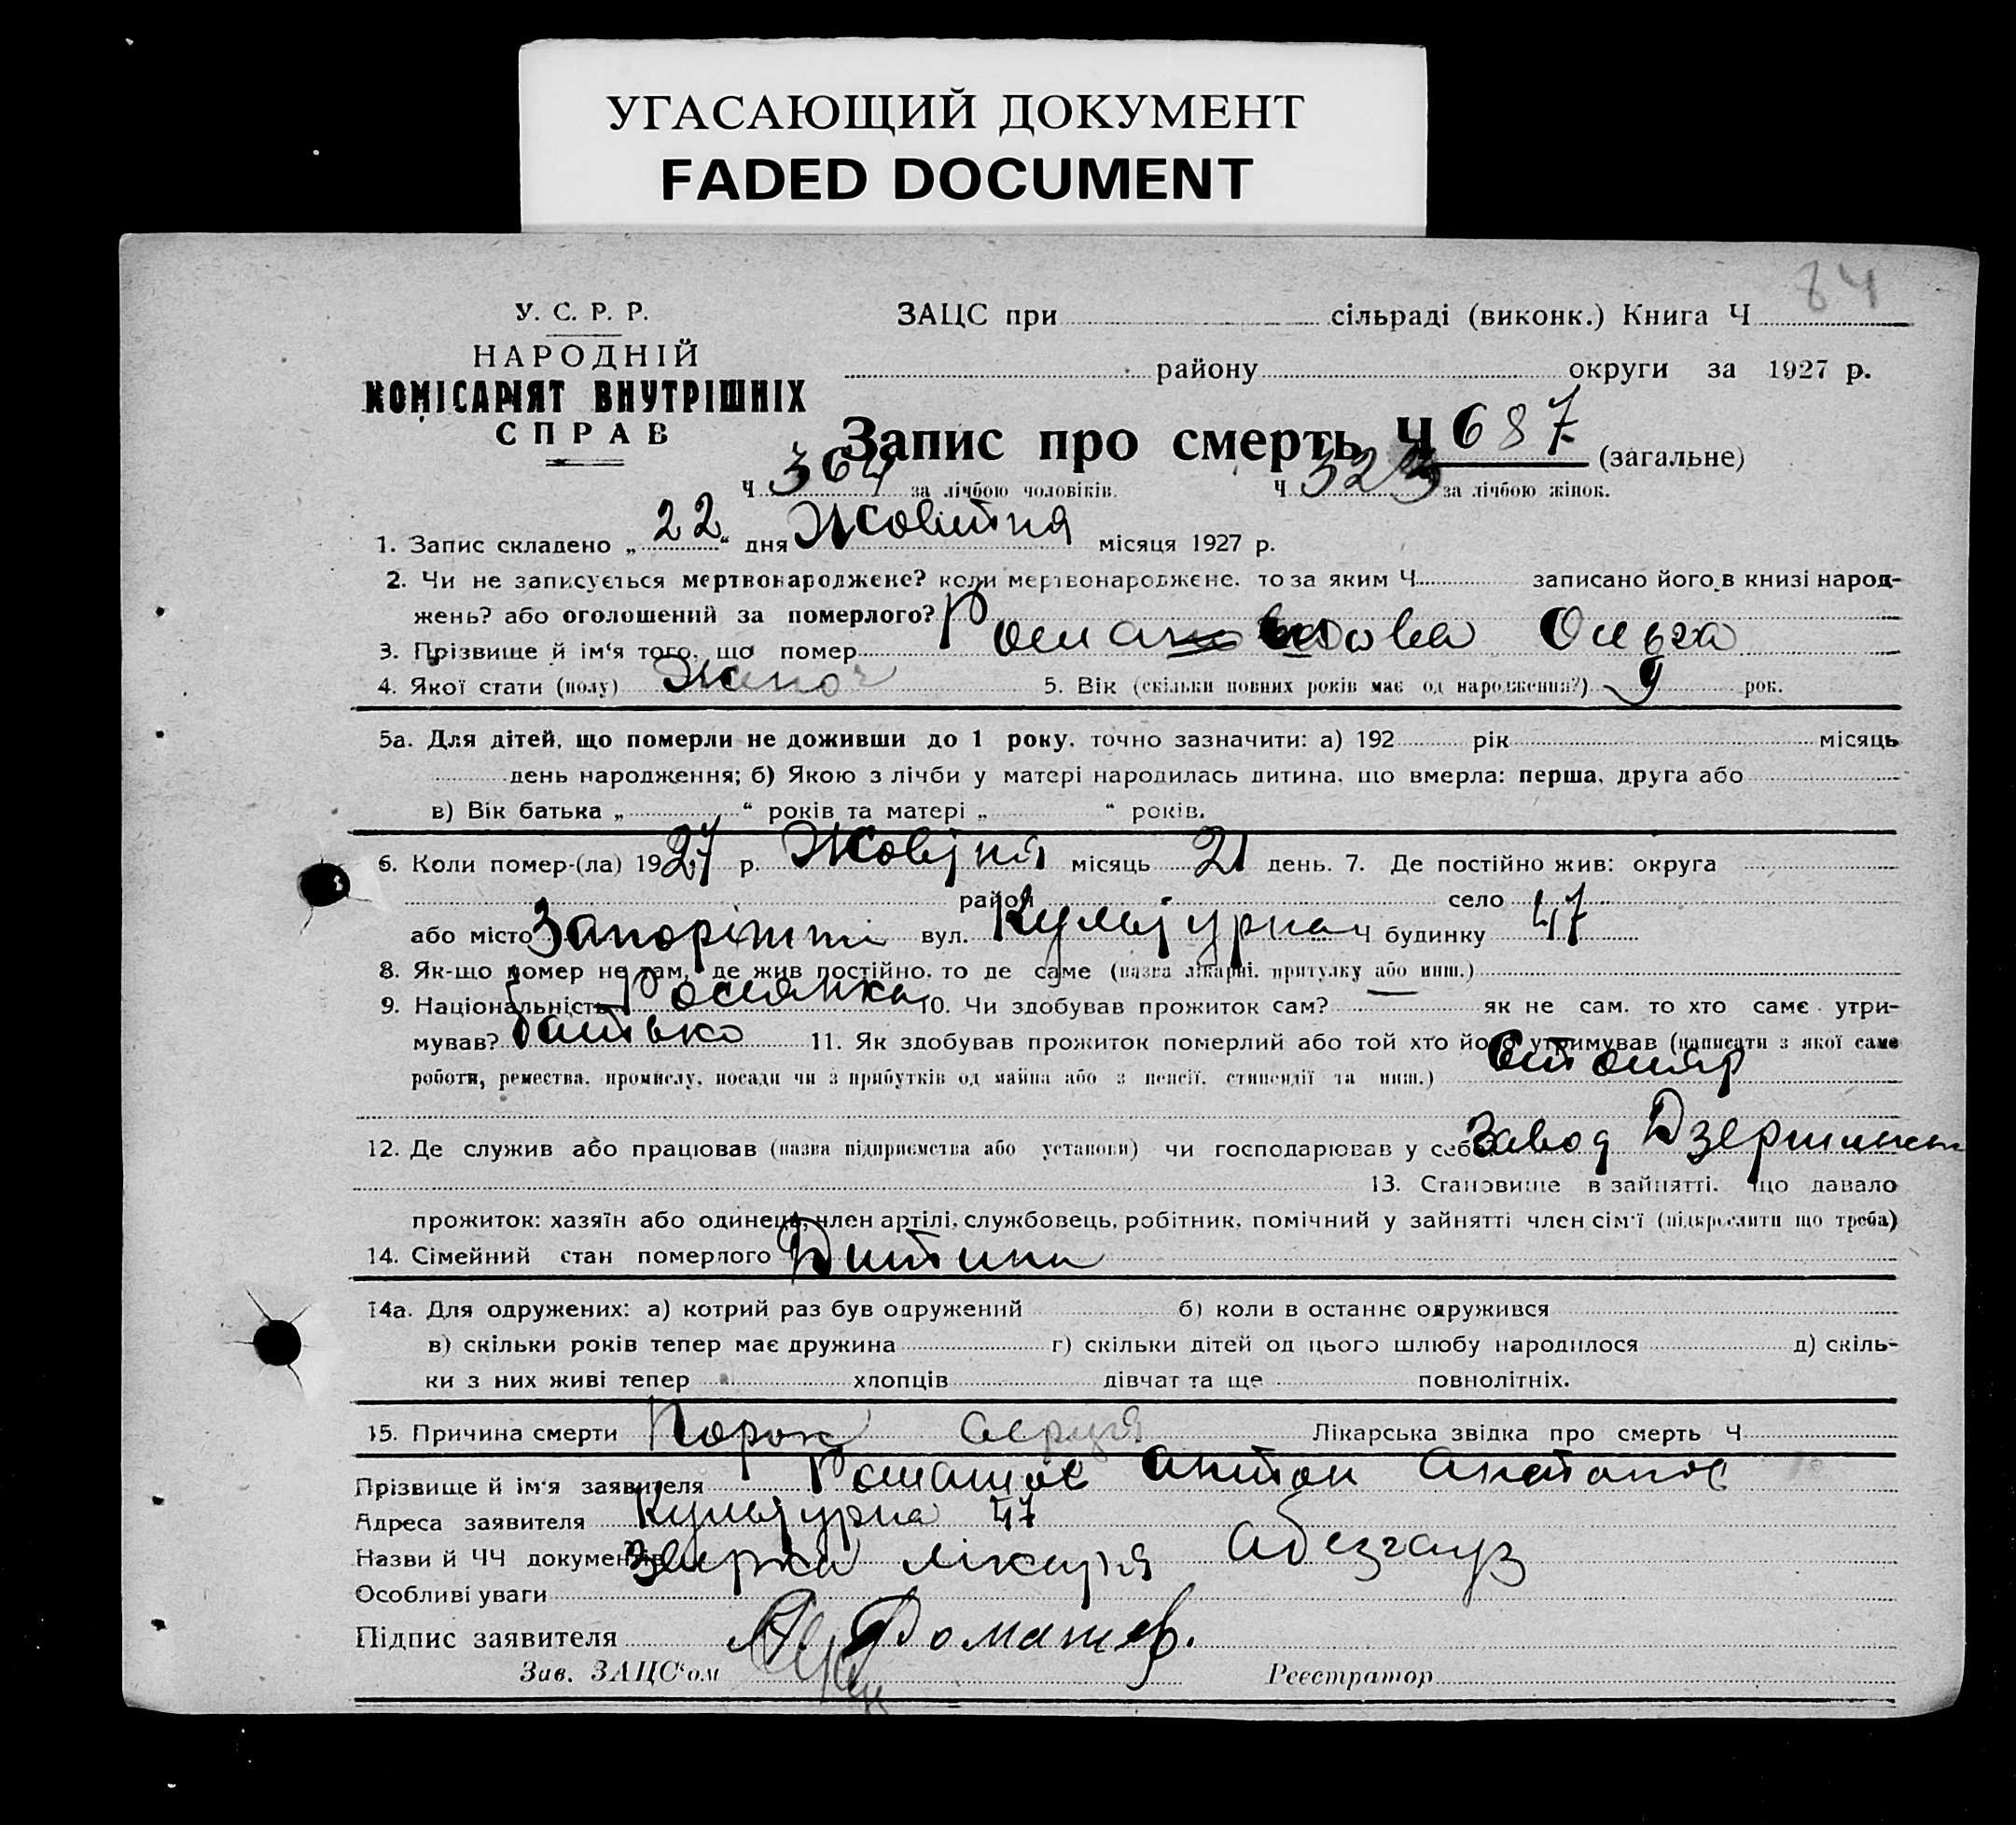 УГАСАЮЩИЙ ДОКУМЕНТ
FADED DOCUMENT
84
У. С. Р. Р.
НАРОДНІЙ
КОМІСАРІЯТ ВНУТРІШНІХ
СПРАВ
ЗАЦС при сільраді (виконк.) Книга Ч
району округи за 1927 р.
Запис про смерть Ч 687 (загальне)
Ч 364 за лічбою чоловіків. Ч 323 за лічбою жінок.
1. Запис складено „ 22 “ дня Жовтня місяця 1927 р.
2. Чи не записується мертвонароджене? коли мертвонароджене, то за яким Ч записано його в книзі народ-
жень? або оголошений за померлого?
3. Прізвище й ім‘я того, що помер Ольга
4. Якої стати (полу) Жіноч 5. Вік (скільки повних років має од народження?) 9 рок.
5а. Для дітей, що померли не доживши до 1 року, точно зазначити: а) 192 рік місяць
день народження; б) Якою з лічби у матері народилась дитина, що вмерла: перша, друга або
в) Вік батька „ “ років та матері „ “ років.
6. Коли помер-(ла) 1927 р. місяць 21 день. 7. Де постійно жив: округа
район село
або місто Запоріжжі вул. Культурна Ч будинку 47
8. Як-що помер не там, де жив постійно, то де саме (назва лікарні, притулку або инш.)
9. Національність Росіянка 10. Чи здобував прожиток сам? — як не сам, то хто саме утри-
мував? батько 11. Як здобував прожиток померлий або той хто його утримував (написати з якої саме
роботи, ремества, промислу, посади чи з прибутків од майна або з пенсії, стипендії та инш.) Столяр
12. Де служив або працював (назва підприємства або установи) чи господарював у себе Завод
13. Становище в зайнятті, що давало
прожиток: хазяїн або одинець, член артілі, службовець, робітник, помічний у зайнятті член сім‘ї (підкреслити що треба)
14. Сімейний стан померлого Дитина
14а. Для одружених: а) котрий раз був одружений б) коли в останнє одружився
в) скільки років тепер має дружина г) скільки дітей од цього шлюбу народилося д) скіль-
ки з них живі тепер хлопців дівчат та ще повнолітніх.
15. Причина смерти Порок серця Лікарська звідка про смерть Ч
Прізвище й ім‘я заявителя Ромашов Антон
Адреса заявителя Культурна 47
Назви й ЧЧ документів лікаря Абезгауз
Особливі уваги
Підпис заявителя А. Ромашов.
Зав. ЗАЦС‘ом Реєстратор